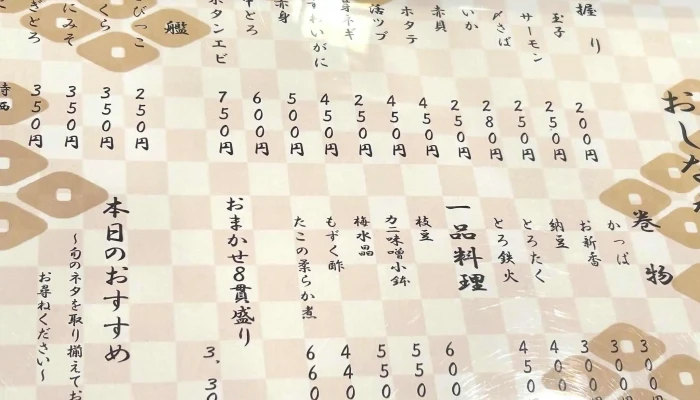 おしな
握り
玉子 200円
サーモン 250円
〆さば 250円
いか 280円
赤貝 250円
ホタテ 450円
活ツブ 450円
身ネギ 250円
ずわいがに 450円
赤身 500円
とろ 600円
ボタンエビ 750円
艦
びっこ 250円
くら 350円
にみそ 350円
ぎとろ 350円
時価
巻物
かっぱ 300円
お新香 300円
納豆 300
とろたく 400
とろ鉄火 450
一品料理
枝豆 600
カニ味噌小鉢 550
梅水晶 550
もずく酢 440
たこの柔らか煮 660
おまかせ8貫盛り 3,30
本日のおすすめ
～旬のネタを取り揃えてお
お尋ねください～